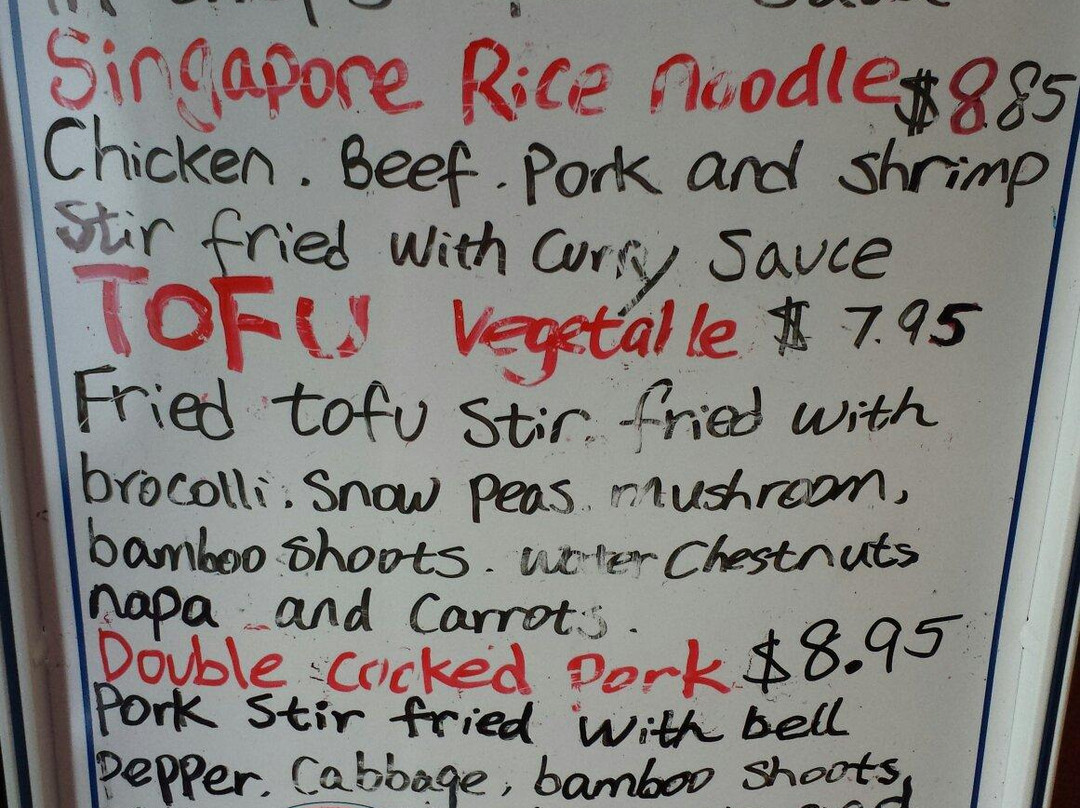 Singapore Rice Noodle $8.85
Chicken. Beef. Pork and shrimp
Stir fried with Curry Sauce
TOFU Vegetable $ 7.95
Fried tofu Stir fried with
brocolli. Snow peas. mushroom,
bamboo shoots. water Chestnuts
napa and Carrots.
Double cocked Pork $8.95
Pork Stir fried with bell
pepper. Cabbage, bamboo shoots,